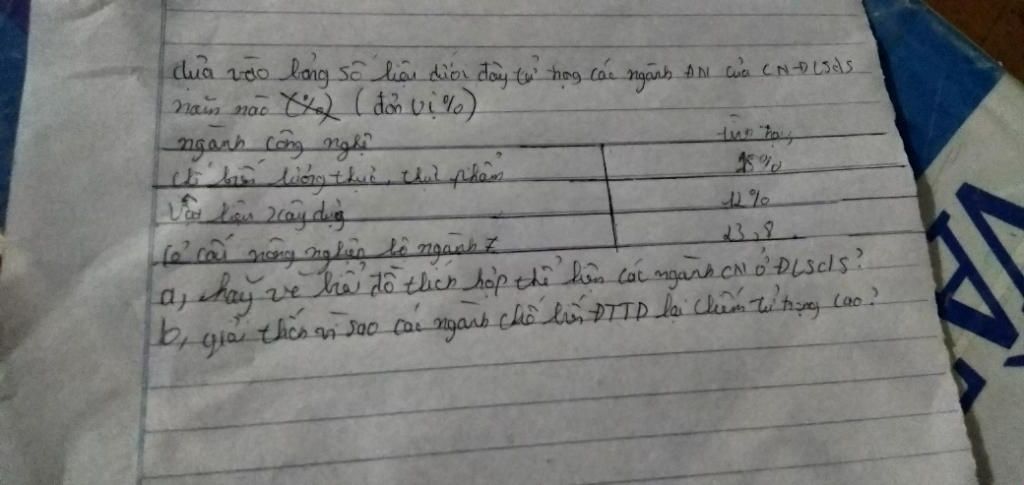 dựa vào bảng số liệu dưới đây tỉ trọng các ngành CN của CN-ĐBSCLS
năm nào (%) (đơn vị %)
ngành công nghị tỉ trọng
chế biến lương thực, thực phẩm 65%
Vật liệu xây dựng 12%
Cơ cấu nông nghiệp 23,8
a, hãy vẽ biểu đồ thích hợp thể hiện các ngành CN ở ĐBSCLS?
b, giải thích vì sao các ngành chế biến lại chiếm tỉ trọng cao?